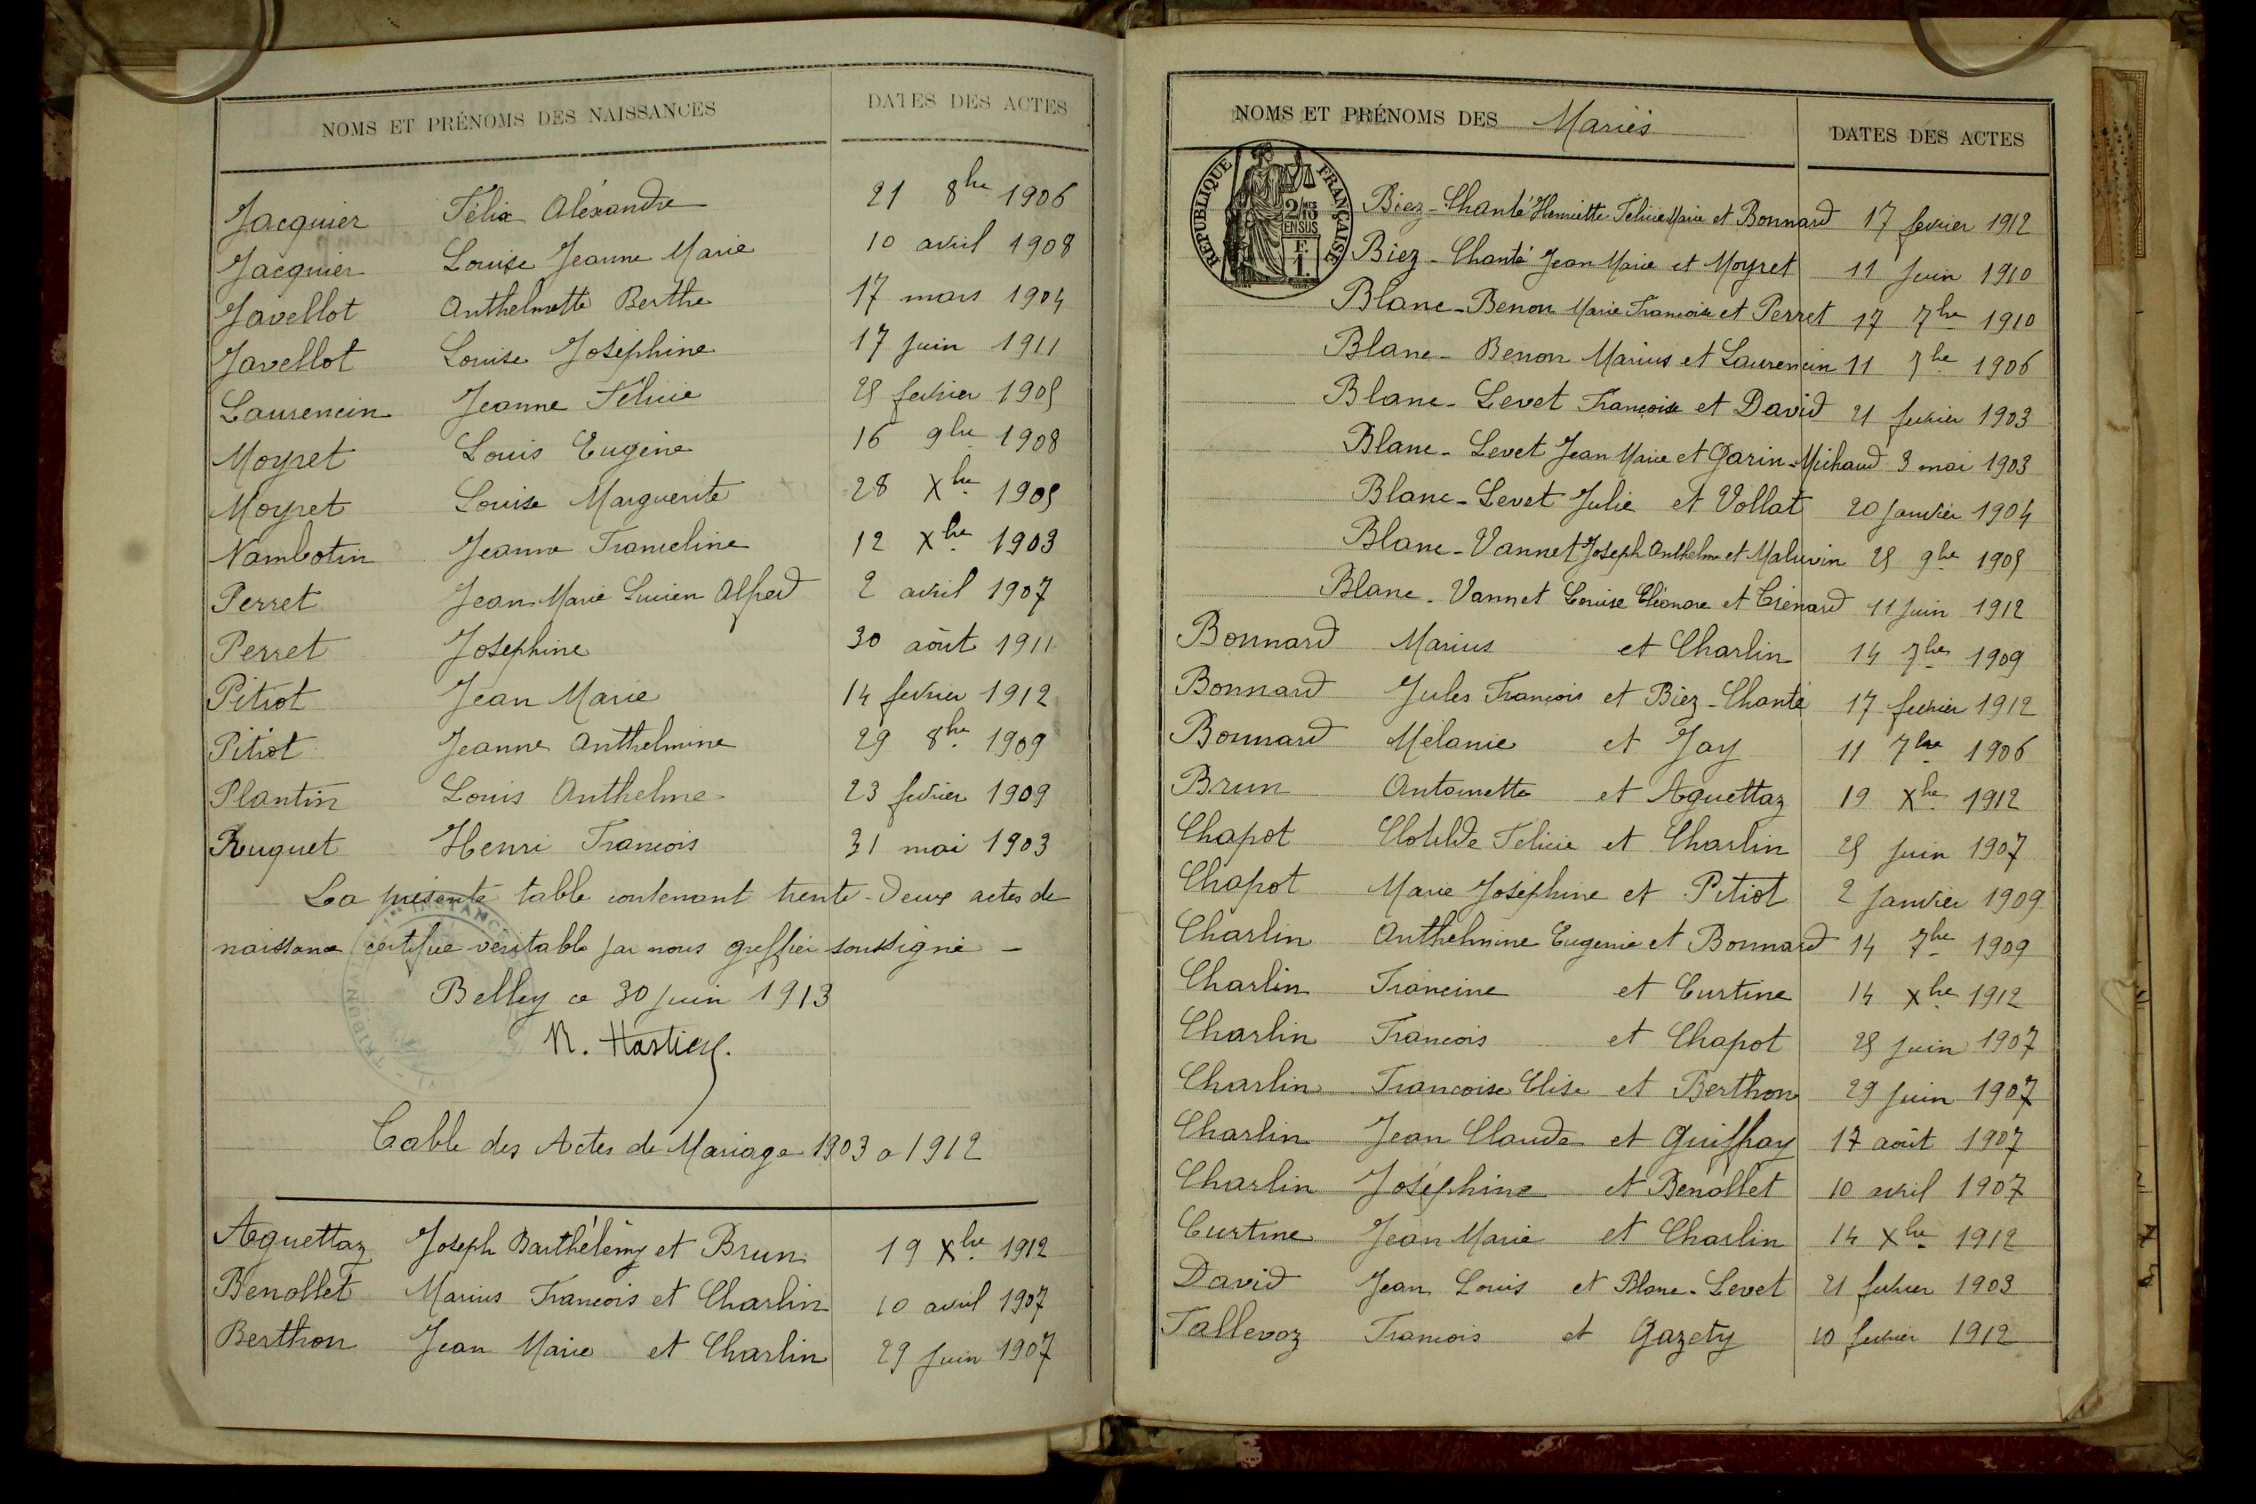 NOMS ET PRÉNOMS DES NAISSANCES DATES DES ACTES
Jacquier Félix Aléxandre 21 8bre 1906
Jacquier Louise Jeanne Marie 10 avril 1908
Javellot Anthelmette Berthe 17 mars 1904
Javellot Louise Joséphine 17 juin 1911
Laurencin Jeanne Félicie 25 fevrier 1905
Moyret Louis Eugène 16 9bre 1908
Moyret Louise Marguerite 28 Xbre 1905
Nambotin Jeanne Franceline 12 Xbre 1903
Perret Jean Marie Lucien Alfred 2 avril 1907
Perret Joséphine 30 août 1911
Pitiot Jean Marie 14 fevrier 1912
Pitiot Jeanne Anthelmine 29 8bre 1909
Plantin Louis Anthelme 23 fevrier 1909
Ruguet Henri Francois 31 mai 1903
La présente table contenant trente-deux actes de
naissance certifiée véritable par nous greffier soussigné –
Belley ce 30 juin 1913
TRIBUN
INSTANCE
Table des Actes de Mariage 1903 a 1912
Aguettaz Joseph Barthélémy et Brun 19 Xbre 1912
Benollet Marius Francois et Charlin 10 avril 1907
Berthon Jean Marie et Charlin 29 juin 1907
NOMS ET PRÉNOMS DES Mariés DATES DES ACTES
RÉPUBLIQUE FRANÇAISE
2/10 EN SUS
F. 1.
Biez-Chanté Henriette Félicie Marie et Bonnard 17 fevrier 1912
Biez-Chanté Jean Marie et Moyret 11 juin 1910
Blanc-Benon Marie Francoise et Perret 17 7bre 1910
Blanc-Benon Marius et Laurencin 11 7bre 1906
Blanc-Levet Francoise et David 21 fevrier 1903
Blanc-Levet Jean Marie et Garin-Michaud 3 mai 1903
Blanc-Levet Julie et Vollat 20 janvier 1904
Blanc-Vannet Joseph Anthelme et Maluvin 25 9bre 1905
Blanc-Vannet Louise Eléonore et Trénard 11 juin 1912
Bonnard Marius et Charlin 14 7bre 1909
Bonnard Jules Francois et Biez-Chanté 17 fevrier 1912
Bonnard Mélanie et Jay 11 7bre 1906
Brun Antoinette et Aguettaz 19 Xbre 1912
Chapot Clotilde Félicie et Charlin 25 juin 1907
Chapot Marie Joséphine et Pitiot 2 janvier 1909
Charlin Anthelmine Eugenie et Bonnard 14 7bre 1909
Charlin Francine et Curtine 14 Xbre 1912
Charlin Francois et Chapot 25 juin 1907
Charlin Francoise Elise et Berthon 29 juin 1907
Charlin Jean Claude et Guiffray 17 août 1907
Charlin Joséphine et Benollet 10 avril 1907
Curtine Jean Marie et Charlin 14 Xbre 1912
David Jean Louis et Blanc-Levet 21 fevrier 1903
Fallevoz Francois et Gazety 10 fevrier 1912